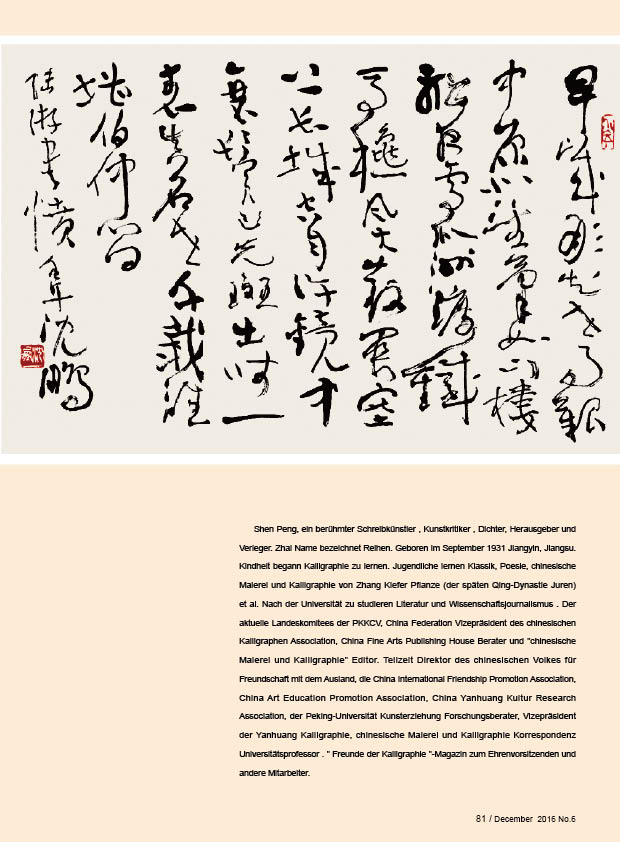 早歲那知世事艱
中原北望氣如山樓
船夜雪瓜洲渡鐵
馬秋風大散關塞
上長城空自許鏡中
衰鬢已先斑出師一
表真名世千載誰
堪伯仲間
陸游書憤 沈鵬
Shen Peng, ein berühmter Schreibkünstler , Kunstkritiker , Dichter, Herausgeber und
Verleger. Zhai Name bezeichnet Reihen. Geboren im September 1931 Jiangyin, Jiangsu.
Kindheit begann Kalligraphie zu lernen. Jugendliche lernen Klassik, Poesie, chinesische
Malerei und Kalligraphie von Zhang Kiefer Pflanze (der späten Qing-Dynastie Juren)
et al. Nach der Universität zu studieren Literatur und Wissenschaftsjournalismus . Der
aktuelle Landeskomitees der PKKCV, China Federation Vizepräsident des chinesischen
Kalligraphen Association, China Fine Arts Publishing House Berater und "chinesische
Malerei und Kalligraphie" Editor. Teilzeit Direktor des chinesischen Volkes für
Freundschaft mit dem Ausland, die China International Friendship Promotion Association,
China Art Education Promotion Association, China Yanhuang Kultur Research
Association, der Peking-Universität Kunsterziehung Forschungsberater, Vizepräsident
der Yanhuang Kalligraphie, chinesische Malerei und Kalligraphie Korrespondenz
Universitätsprofessor . " Freunde der Kalligraphie "-Magazin zum Ehrenvorsitzenden und
andere Mitarbeiter.
81 / December 2016 No.6